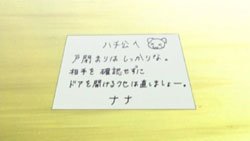 ハチ公へ
戸閉まりは しっかりな。
相手を確認せずに
ドアを開けるクセは直しましょー。
ナナ